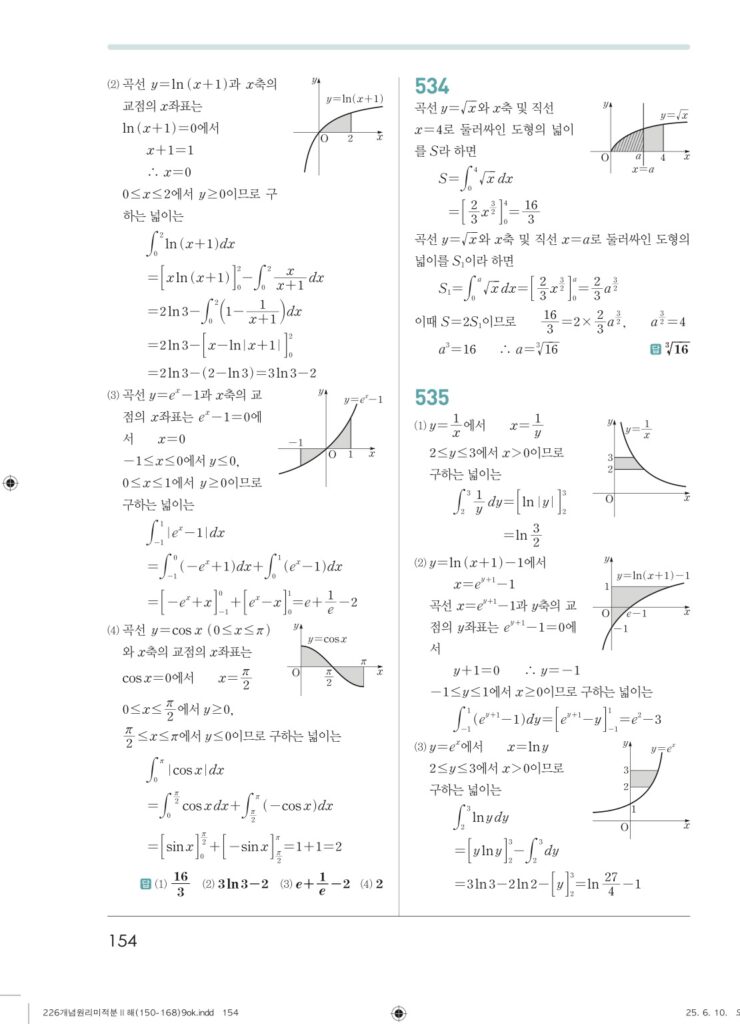 (2) 곡선 y=ln(x+1)과 x축의
교점의 x좌표는
ln(x+1)=0에서
x+1=1
∴ x=0
0≤x≤2에서 y≥0이므로 구
하는 넓이는
∫₀² ln(x+1)dx
=[x ln(x+1)]₀²-∫₀² x/(x+1) dx
=2 ln 3-∫₀²(1-1/(x+1))dx
=2 ln 3-[x-ln|x+1|]₀²
=2 ln 3-(2-ln 3)=3 ln 3-2
y
y=ln(x+1)
O 2 x
(3) 곡선 y=eˣ-1과 x축의 교
점의 x좌표는 eˣ-1=0에
서 x=0
-1≤x≤0에서 y≤0,
0≤x≤1에서 y≥0이므로
구하는 넓이는
∫₋₁¹ |eˣ-1|dx
=∫₋₁⁰(-eˣ+1)dx+∫₀¹(eˣ-1)dx
=[-eˣ+x]₋₁⁰+[eˣ-x]₀¹=e+1/e-2
y
y=eˣ-1
-1
O 1 x
(4) 곡선 y=cos x (0≤x≤π)
와 x축의 교점의 x좌표는
cos x=0에서 x=π/2
0≤x≤π/2에서 y≥0,
π/2≤x≤π에서 y≤0이므로 구하는 넓이는
∫₀^π |cos x|dx
=∫₀^(π/2) cos x dx+∫_(π/2)^π (-cos x)dx
=[sin x]₀^(π/2)+[-sin x]_(π/2)^π=1+1=2
y
y=cos x
π
O π/2 x
답 (1) 16/3 (2) 3 ln 3-2 (3) e+1/e-2 (4) 2
534
곡선 y=√x와 x축 및 직선
x=4로 둘러싸인 도형의 넓이
를 S라 하면
S=∫₀⁴ √x dx
=[2/3 x^(3/2)]₀⁴=16/3
y
y=√x
O a 4 x
x=a
곡선 y=√x와 x축 및 직선 x=a로 둘러싸인 도형의
넓이를 S₁이라 하면
S₁=∫₀^a √x dx=[2/3 x^(3/2)]₀^a=2/3 a^(3/2)
이때 S=2S₁이므로 16/3=2×2/3 a^(3/2), a^(3/2)=4
a³=16 ∴ a=∛16 답 ∛16
535
(1) y=1/x에서 x=1/y
2≤y≤3에서 x>0이므로
구하는 넓이는
∫₂³ 1/y dy=[ln|y|]₂³
=ln 3/2
y
y=1/x
3
2
O x
(2) y=ln(x+1)-1에서
x=e^(y+1)-1
곡선 x=e^(y+1)-1과 y축의 교
점의 y좌표는 e^(y+1)-1=0에
서
y+1=0 ∴ y=-1
-1≤y≤1에서 x≥0이므로 구하는 넓이는
∫₋₁¹(e^(y+1)-1)dy=[e^(y+1)-y]₋₁¹=e²-3
y
y=ln(x+1)-1
1
O e-1 x
-1
(3) y=eˣ에서 x=ln y
2≤y≤3에서 x>0이므로
구하는 넓이는
∫₂³ ln y dy
=[y ln y]₂³-∫₂³ dy
=3 ln 3-2 ln 2-[y]₂³=ln 27/4-1
y
y=eˣ
3
2
1
O x
154
226개념원리미적분Ⅱ해(150-168)9ok.indd 154
25. 6. 10.